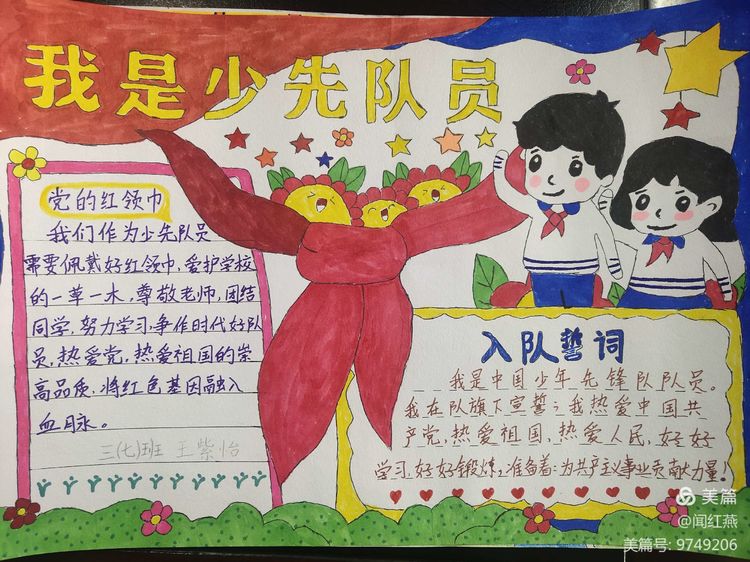 我是少先队员
党的红领巾
我们作为少先队员
需要佩戴好红领巾,爱护学校
的一草一木,尊敬老师,团结
同学,努力学习,争作时代好队
员,热爱党,热爱祖国的崇
高品质,将红色基因融入
血脉。
三(七)班 王紫怡
入队誓词
我是中国少年先锋队队员。
我在队旗下宣誓:我热爱中国共
产党,热爱祖国,热爱人民,好好
学习,好好锻炼,准备着:为共产主义事业贡献力量!
美篇
@闻红燕
美篇号: 9749206